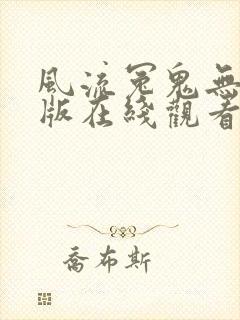 風流冤鬼無
版在綫觀看
喬布斯